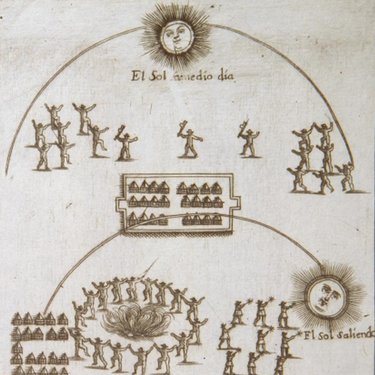 El Sol amedio día
El Sol saliend